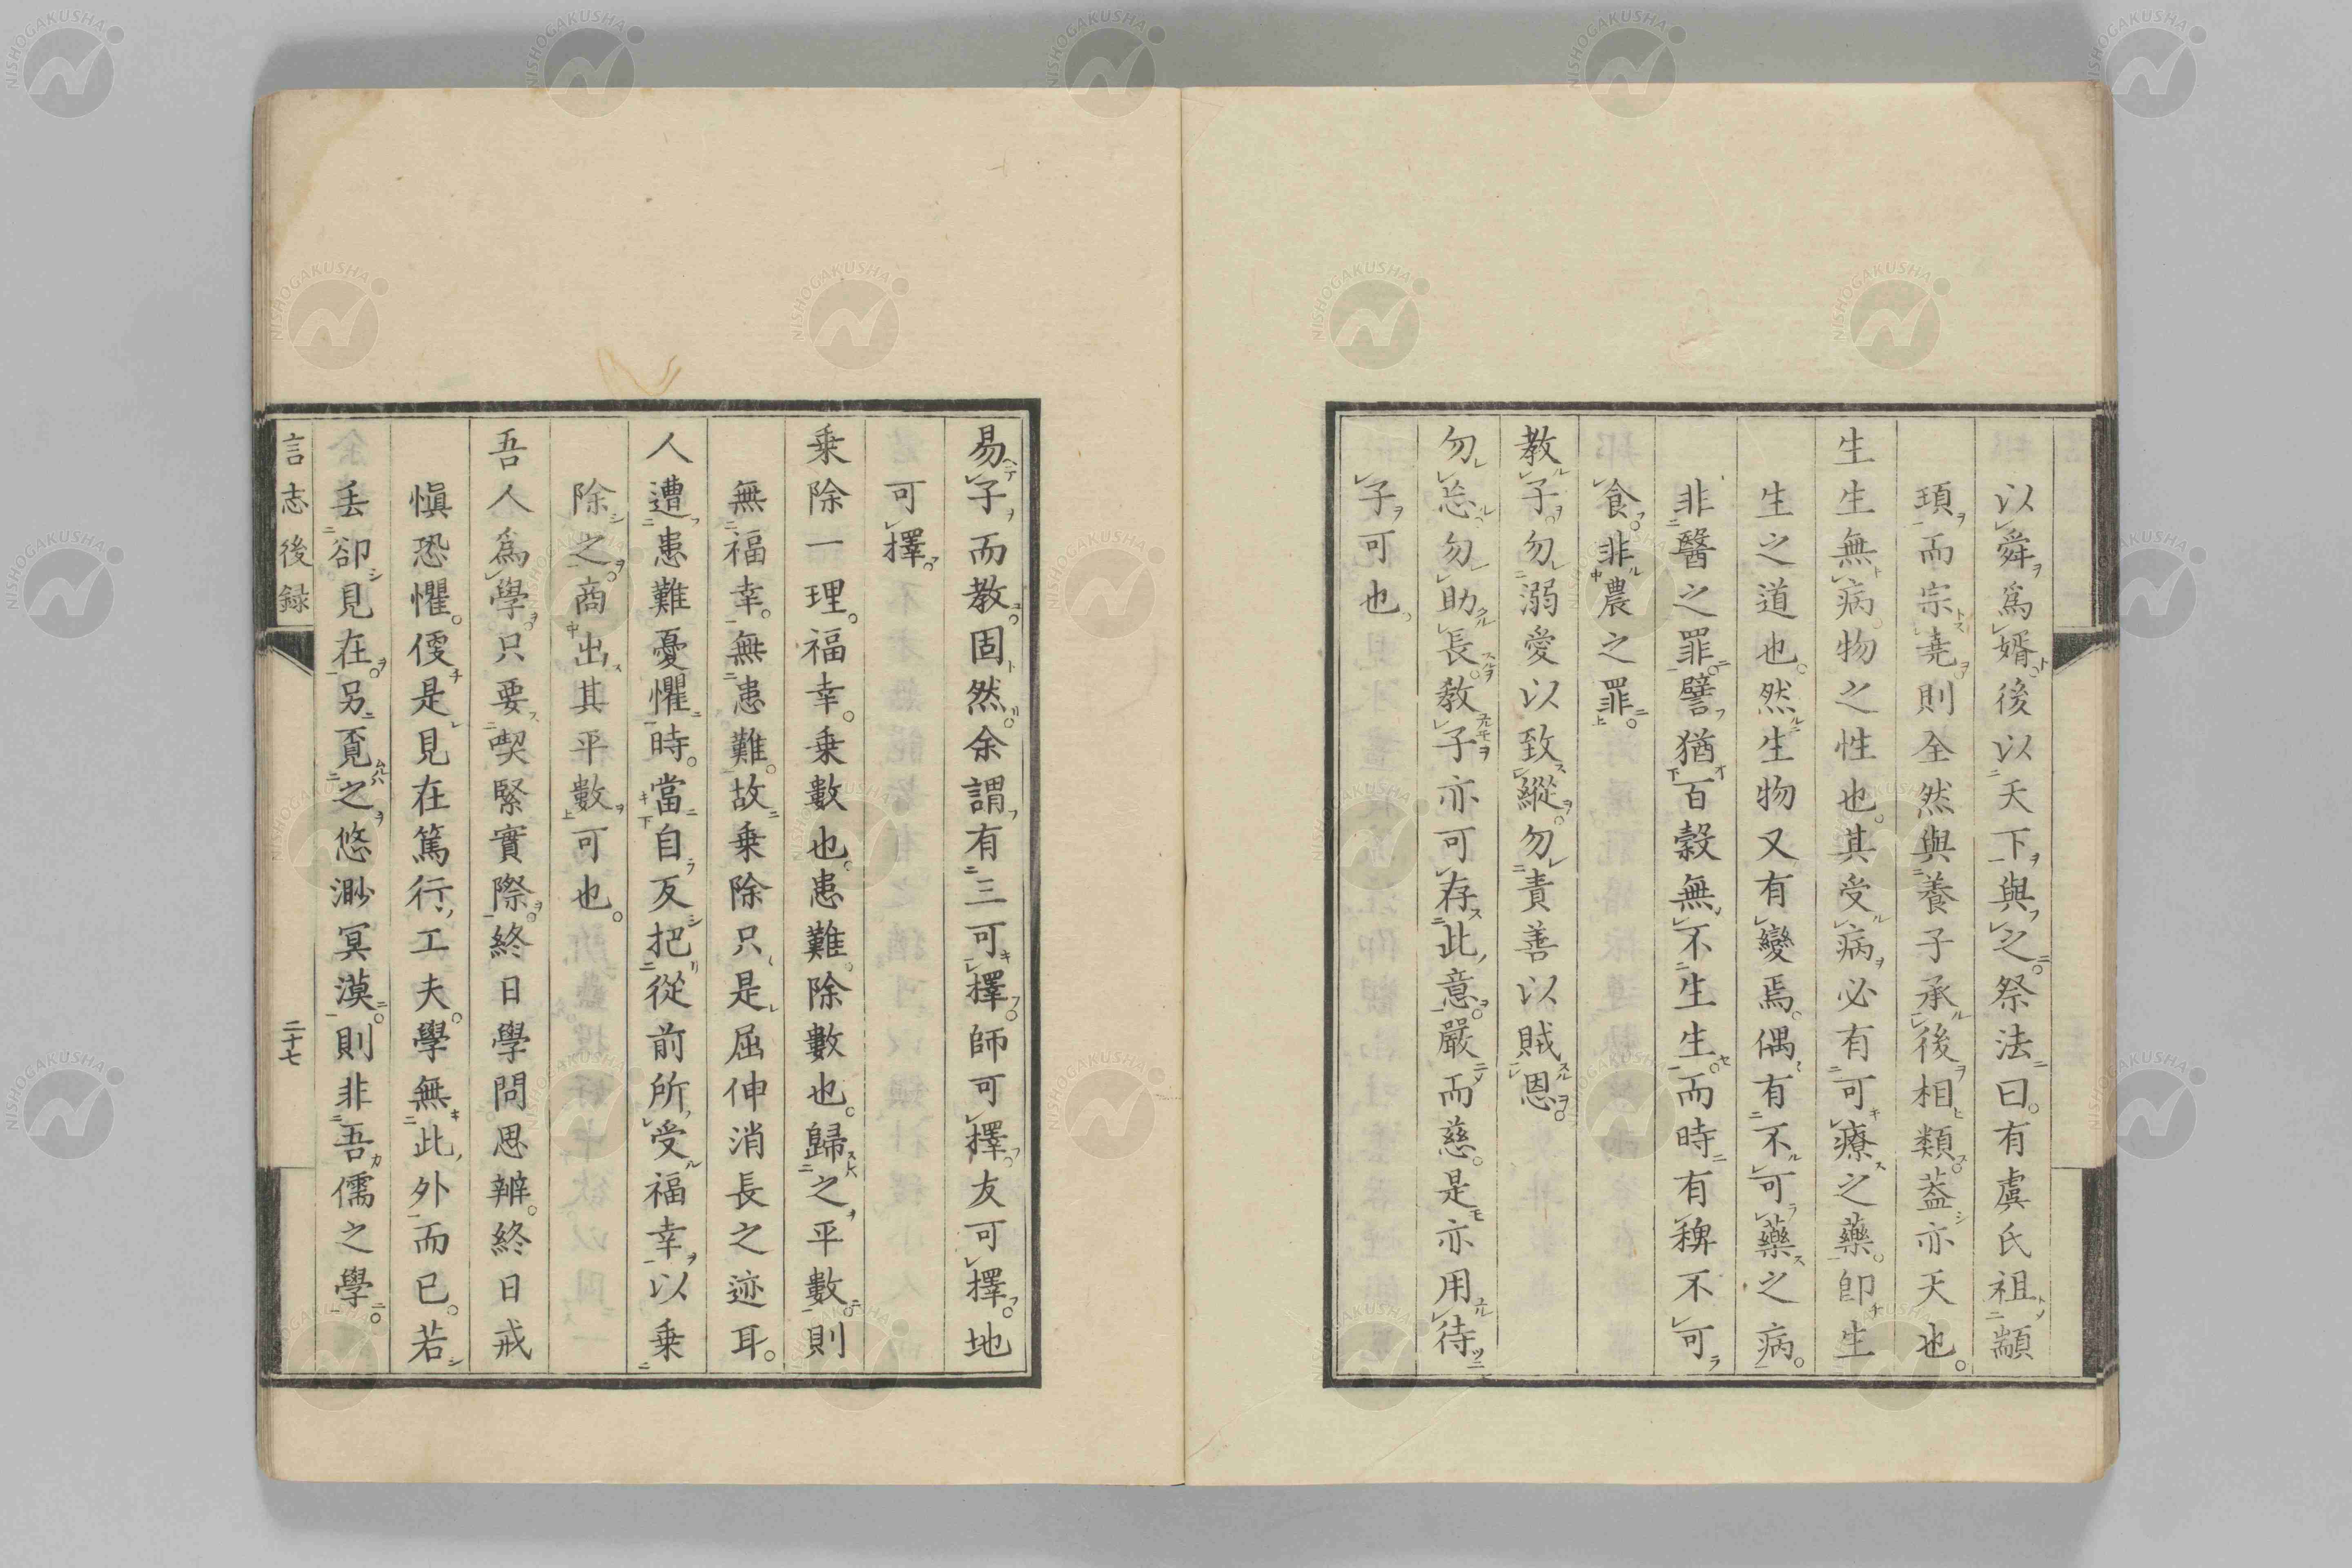 以舜爲婿後以天下與之祭法曰有虞氏祖顓
頊而宗堯則全然與養子承後相類蓋亦天也
生生無病物之性也其受病必有可療之藥卽生
生之道也然生物又有變焉偶有不可藥之病
非醫之罪譬猶百穀無不生生而時有稗不可
食非農之罪
教子勿溺愛以致縱勿責善以賊恩
勿忘勿助長教子亦可存此意嚴而慈是亦用待
子可也
易子而教固然余謂有三可擇師可擇友可擇地
可擇
乘除一理福幸乘數也患難除數也歸之平數則
無福幸無患難故乘除只是屈伸消長之迹耳
人遭患難憂懼時當自反把從前所受福幸以乘
除之商出其平數可也
吾人爲學只要喫緊實際終日學問思辨終日戒
愼恐懼便是見在篤行工夫學無此外而已若
丢卻見在另覓之悠渺冥漠則非吾儒之學
言志後録
二十七
NISHOGAKUSHA